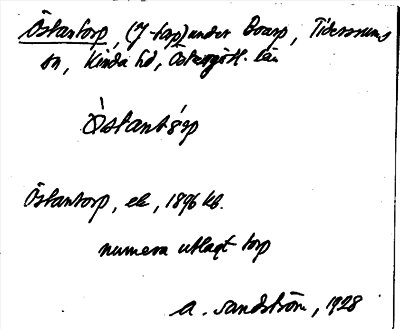 Östantorp, (J-torp) under Boarp, Tidersrums
sn, Kinda hd, Östergötl. län
Östantorp, 1896 kb.
numera utlagt torp
A. Sandström, 1928